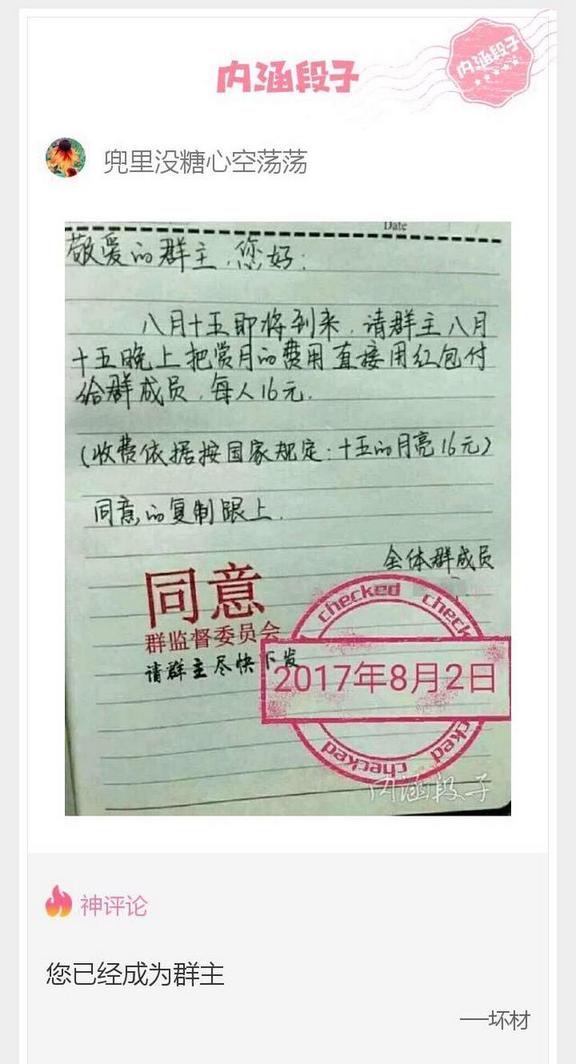 内涵段子
内涵段子
兜里没糖心空荡荡
Date
敬爱的群主，您好：
八月十五即将到来，请群主八月
十五晚上把赏月的费用直接用红包付
给群成员，每人16元.
（收费依据按国家规定：十五的月亮16元）
同意的复制跟上.
全体群成员
同意
群监督委员会
请群主尽快下发
checked check
2017年8月2日
checked checked
内涵段子
神评论
您已经成为群主
——坏材